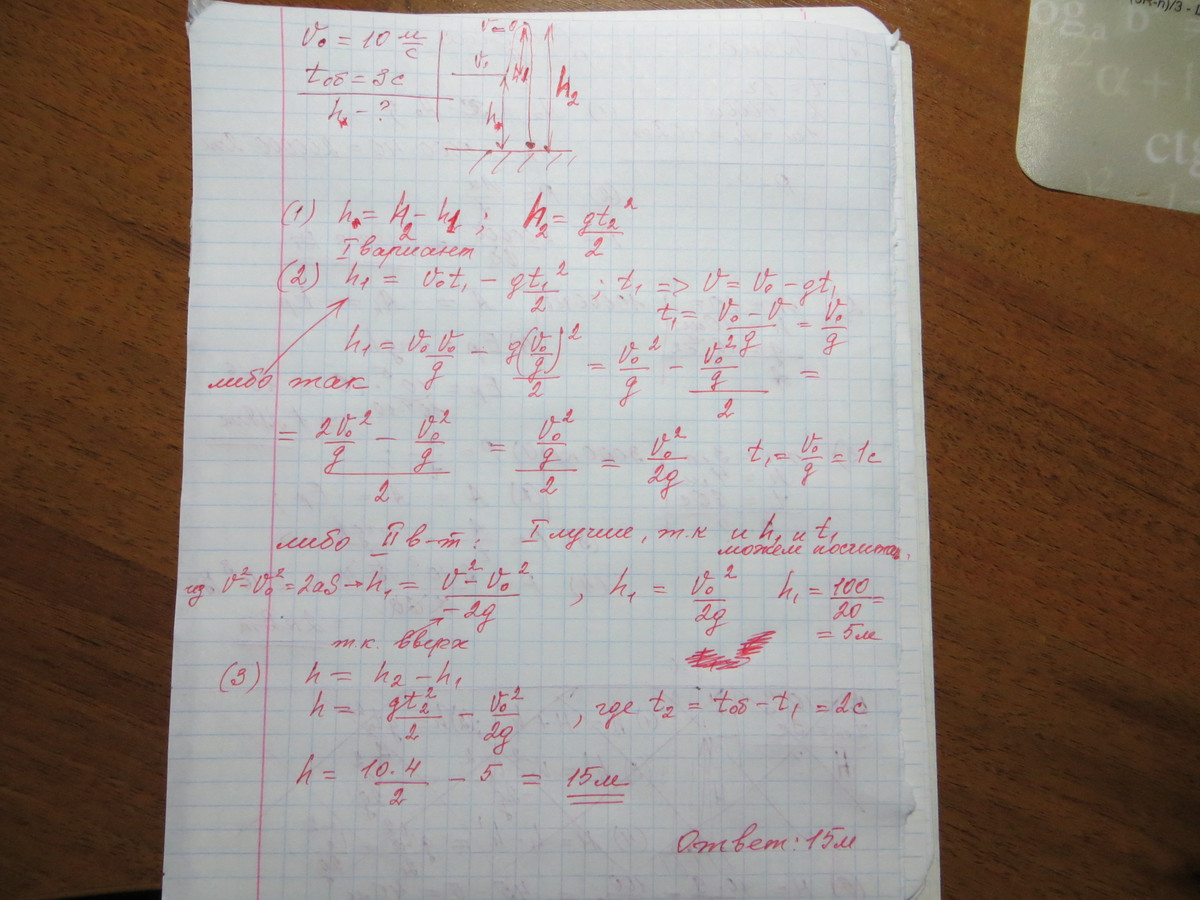 (3R-h)/3 -
log_a b =
2 α + 1
ctg
)² - 1
v₀ = 10 м/с
t об = 3с
h - ?
v=0
v₁
h₁
h₂
h
(1) h = h₂ - h₁ ; h₂ = gt₂²/2
I вариант
(2) h₁ = v₀t₁ - gt₁²/2 ; t₁ => v = v₀ - gt₁
t₁ = (v₀ - v)/g = v₀/g
h₁ = v₀v₀/g - g(v₀/g)²/2 = v₀²/g - (v₀²/g)/2 =
либо так
= (2v₀²/g - v₀²/g)/2 = (v₀²/g)/2 = v₀²/2g t₁ = v₀/g = 1с
либо II в-т: I лучше, т.к и h₁ и t₁
можем посчитать.
из v² - v₀² = 2aS → h₁ = (v² - v₀²)/-2g , h₁ = v₀²/2g h₁ = 100/20 =
= 5м
т.к. вверх
(3) h = h₂ - h₁
h = gt₂²/2 - v₀²/2g , где t₂ = tоб - t₁ = 2с
h = 10·4/2 - 5 = 15м
Ответ: 15м